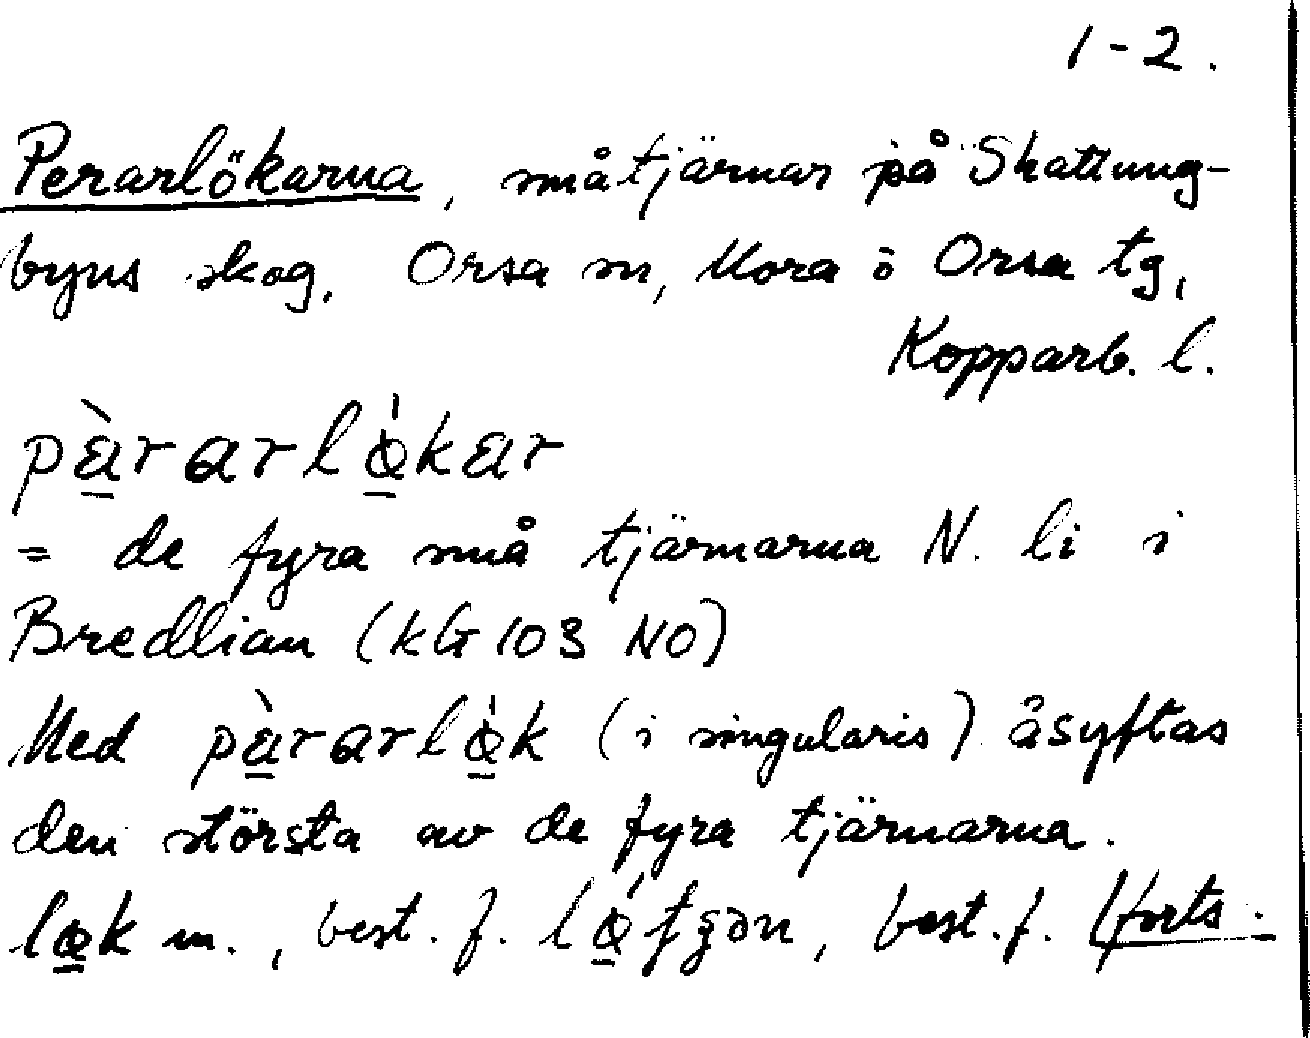 1-2.
Perarlökarna, småtjärnar på Skattung-
byns skog, Orsa sn, Mora o Orsa tg,
Kopparb. l.
pàrarlǿkar
= de fyra små tjärnarna N. li i
Bredlian (kG 103 NO)
Med pàrarlǿk (i singularis) åsyftas
den största av de fyra tjärnarna.
løk m., best. f. , best. f. (forts.